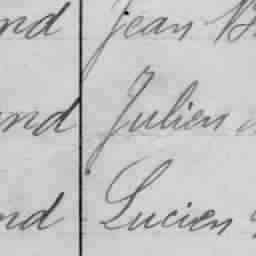 nd Jean
nd Julien
nd Lucien